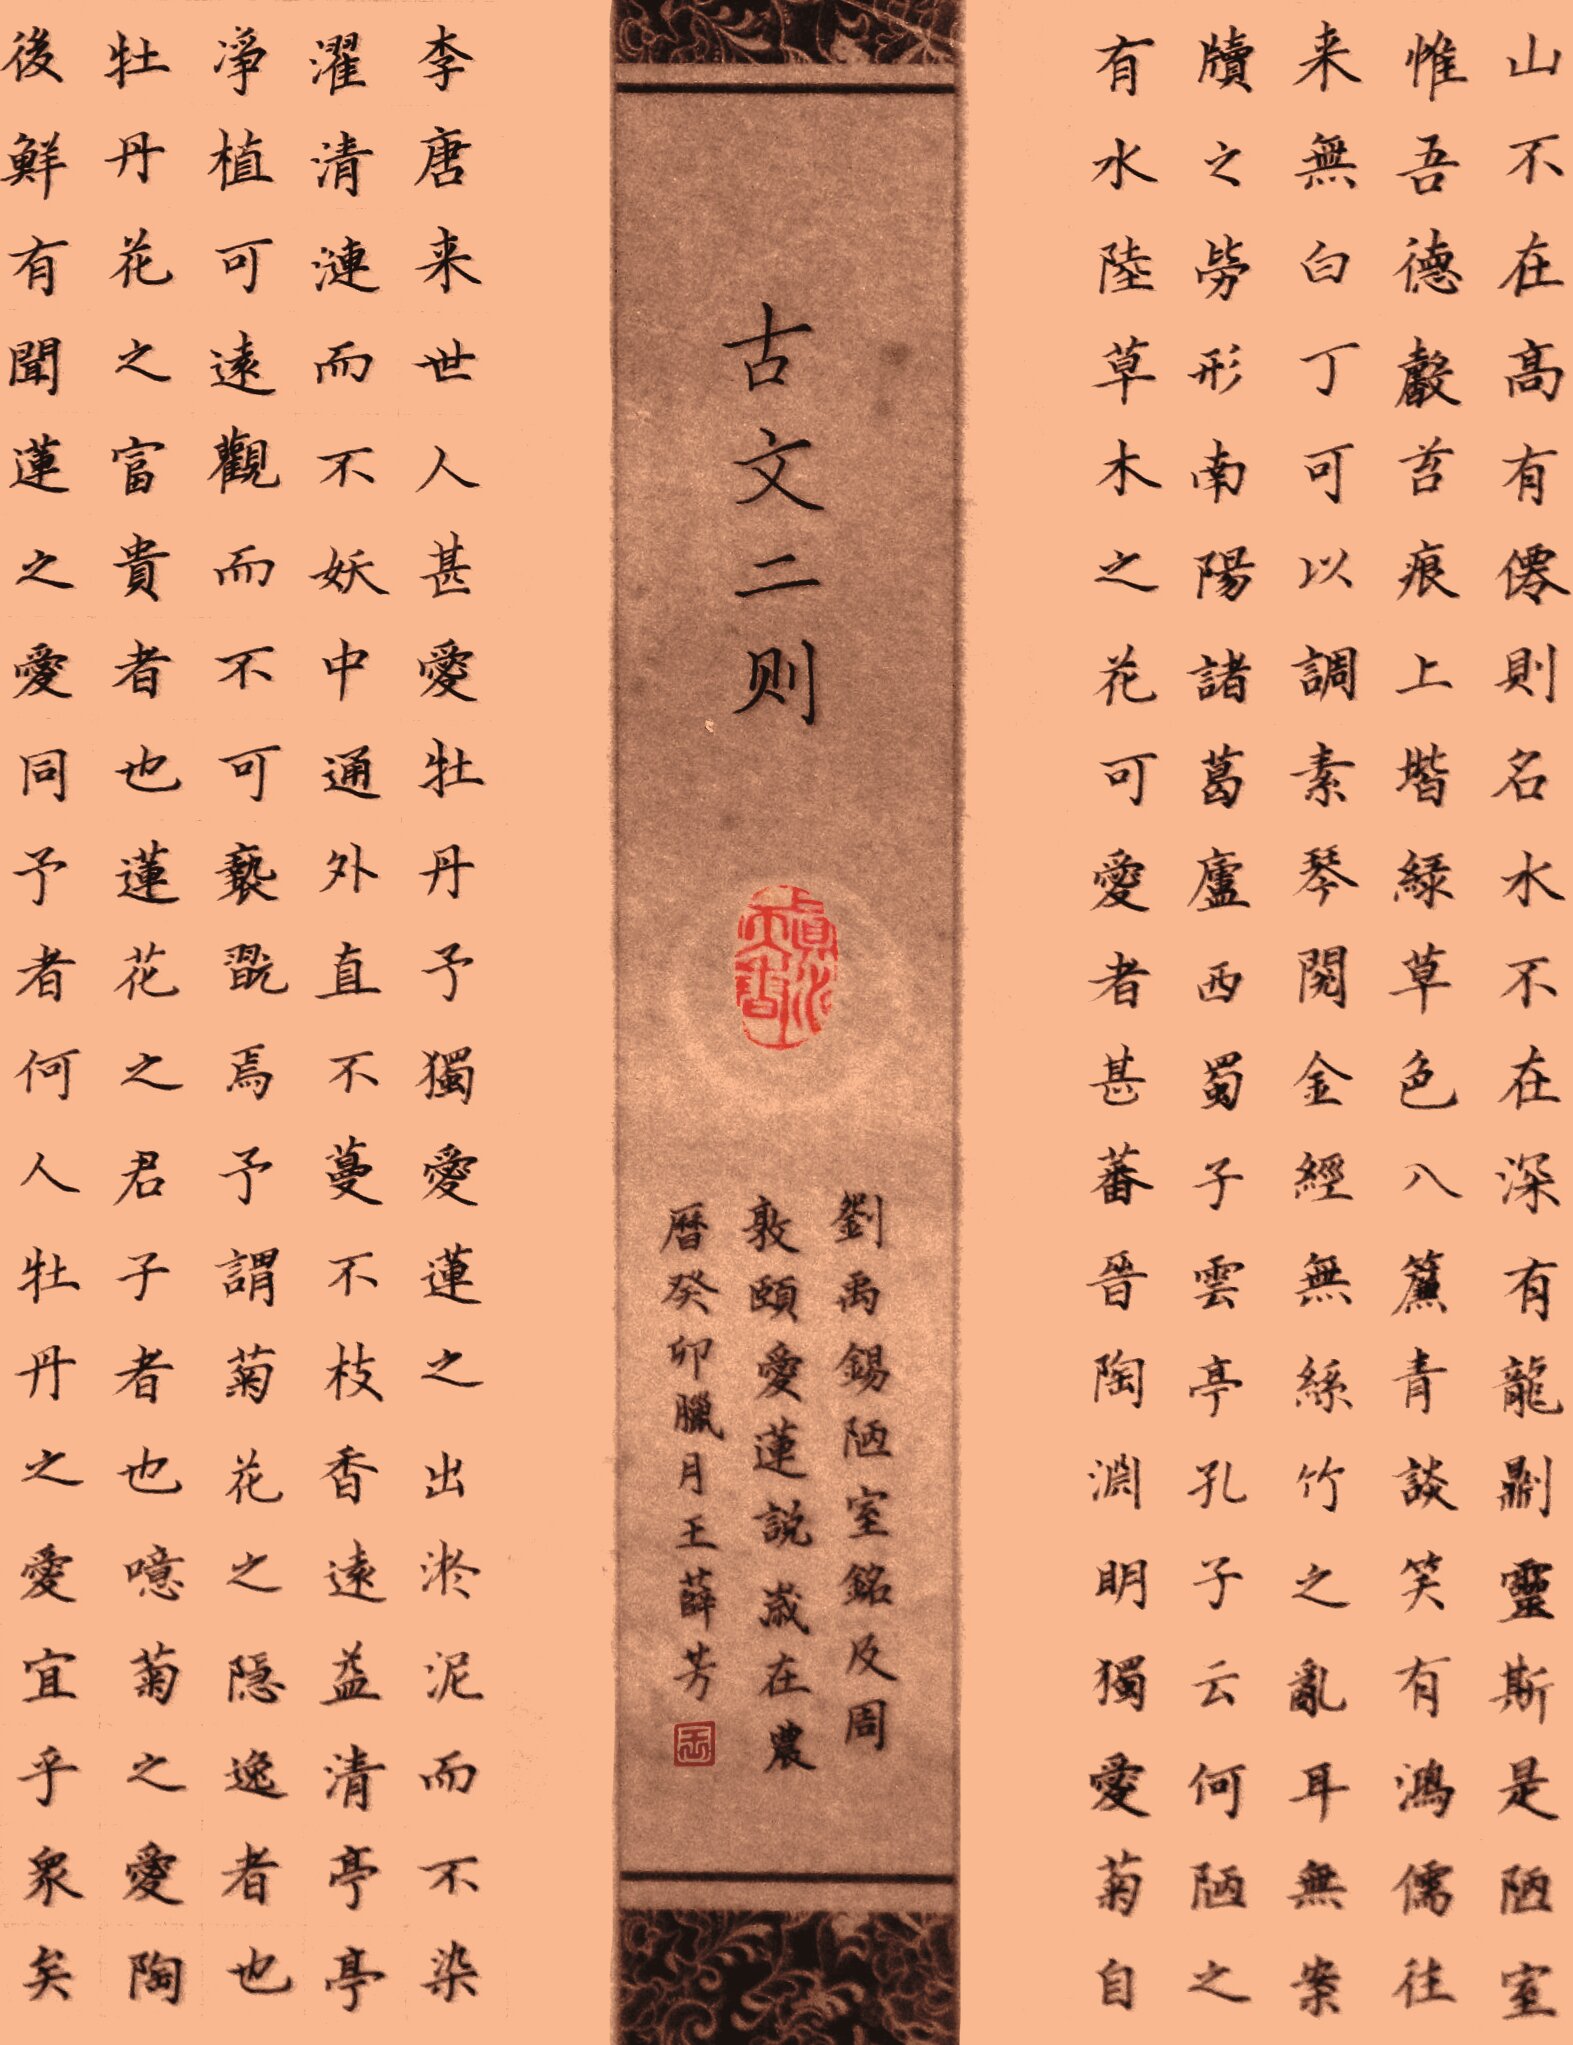 山不在高有僊則名水不在深有龍則靈斯是陋室
惟吾德馨苔痕上堦緑草色入簾青談笑有鴻儒往
来無白丁可以調素琴閱金經無絲竹之亂耳無案
牘之勞形南陽諸葛廬西蜀子雲亭孔子云何陋之
有水陸草木之花可愛者甚蕃晉陶淵明獨愛菊自
古文二则
真水
无香
劉禹錫陋室銘及周
敦頤愛蓮説歲在農
暦癸卯臘月王薛芳
王
李唐来世人甚愛牡丹予獨愛蓮之出淤泥而不染
濯清漣而不妖中通外直不蔓不枝香遠益清亭亭
淨植可遠觀而不可褻翫焉予謂菊花之隠逸者也
牡丹花之富貴者也蓮花之君子者也噫菊之愛陶
後鮮有聞蓮之愛同予者何人牡丹之愛宜乎衆矣